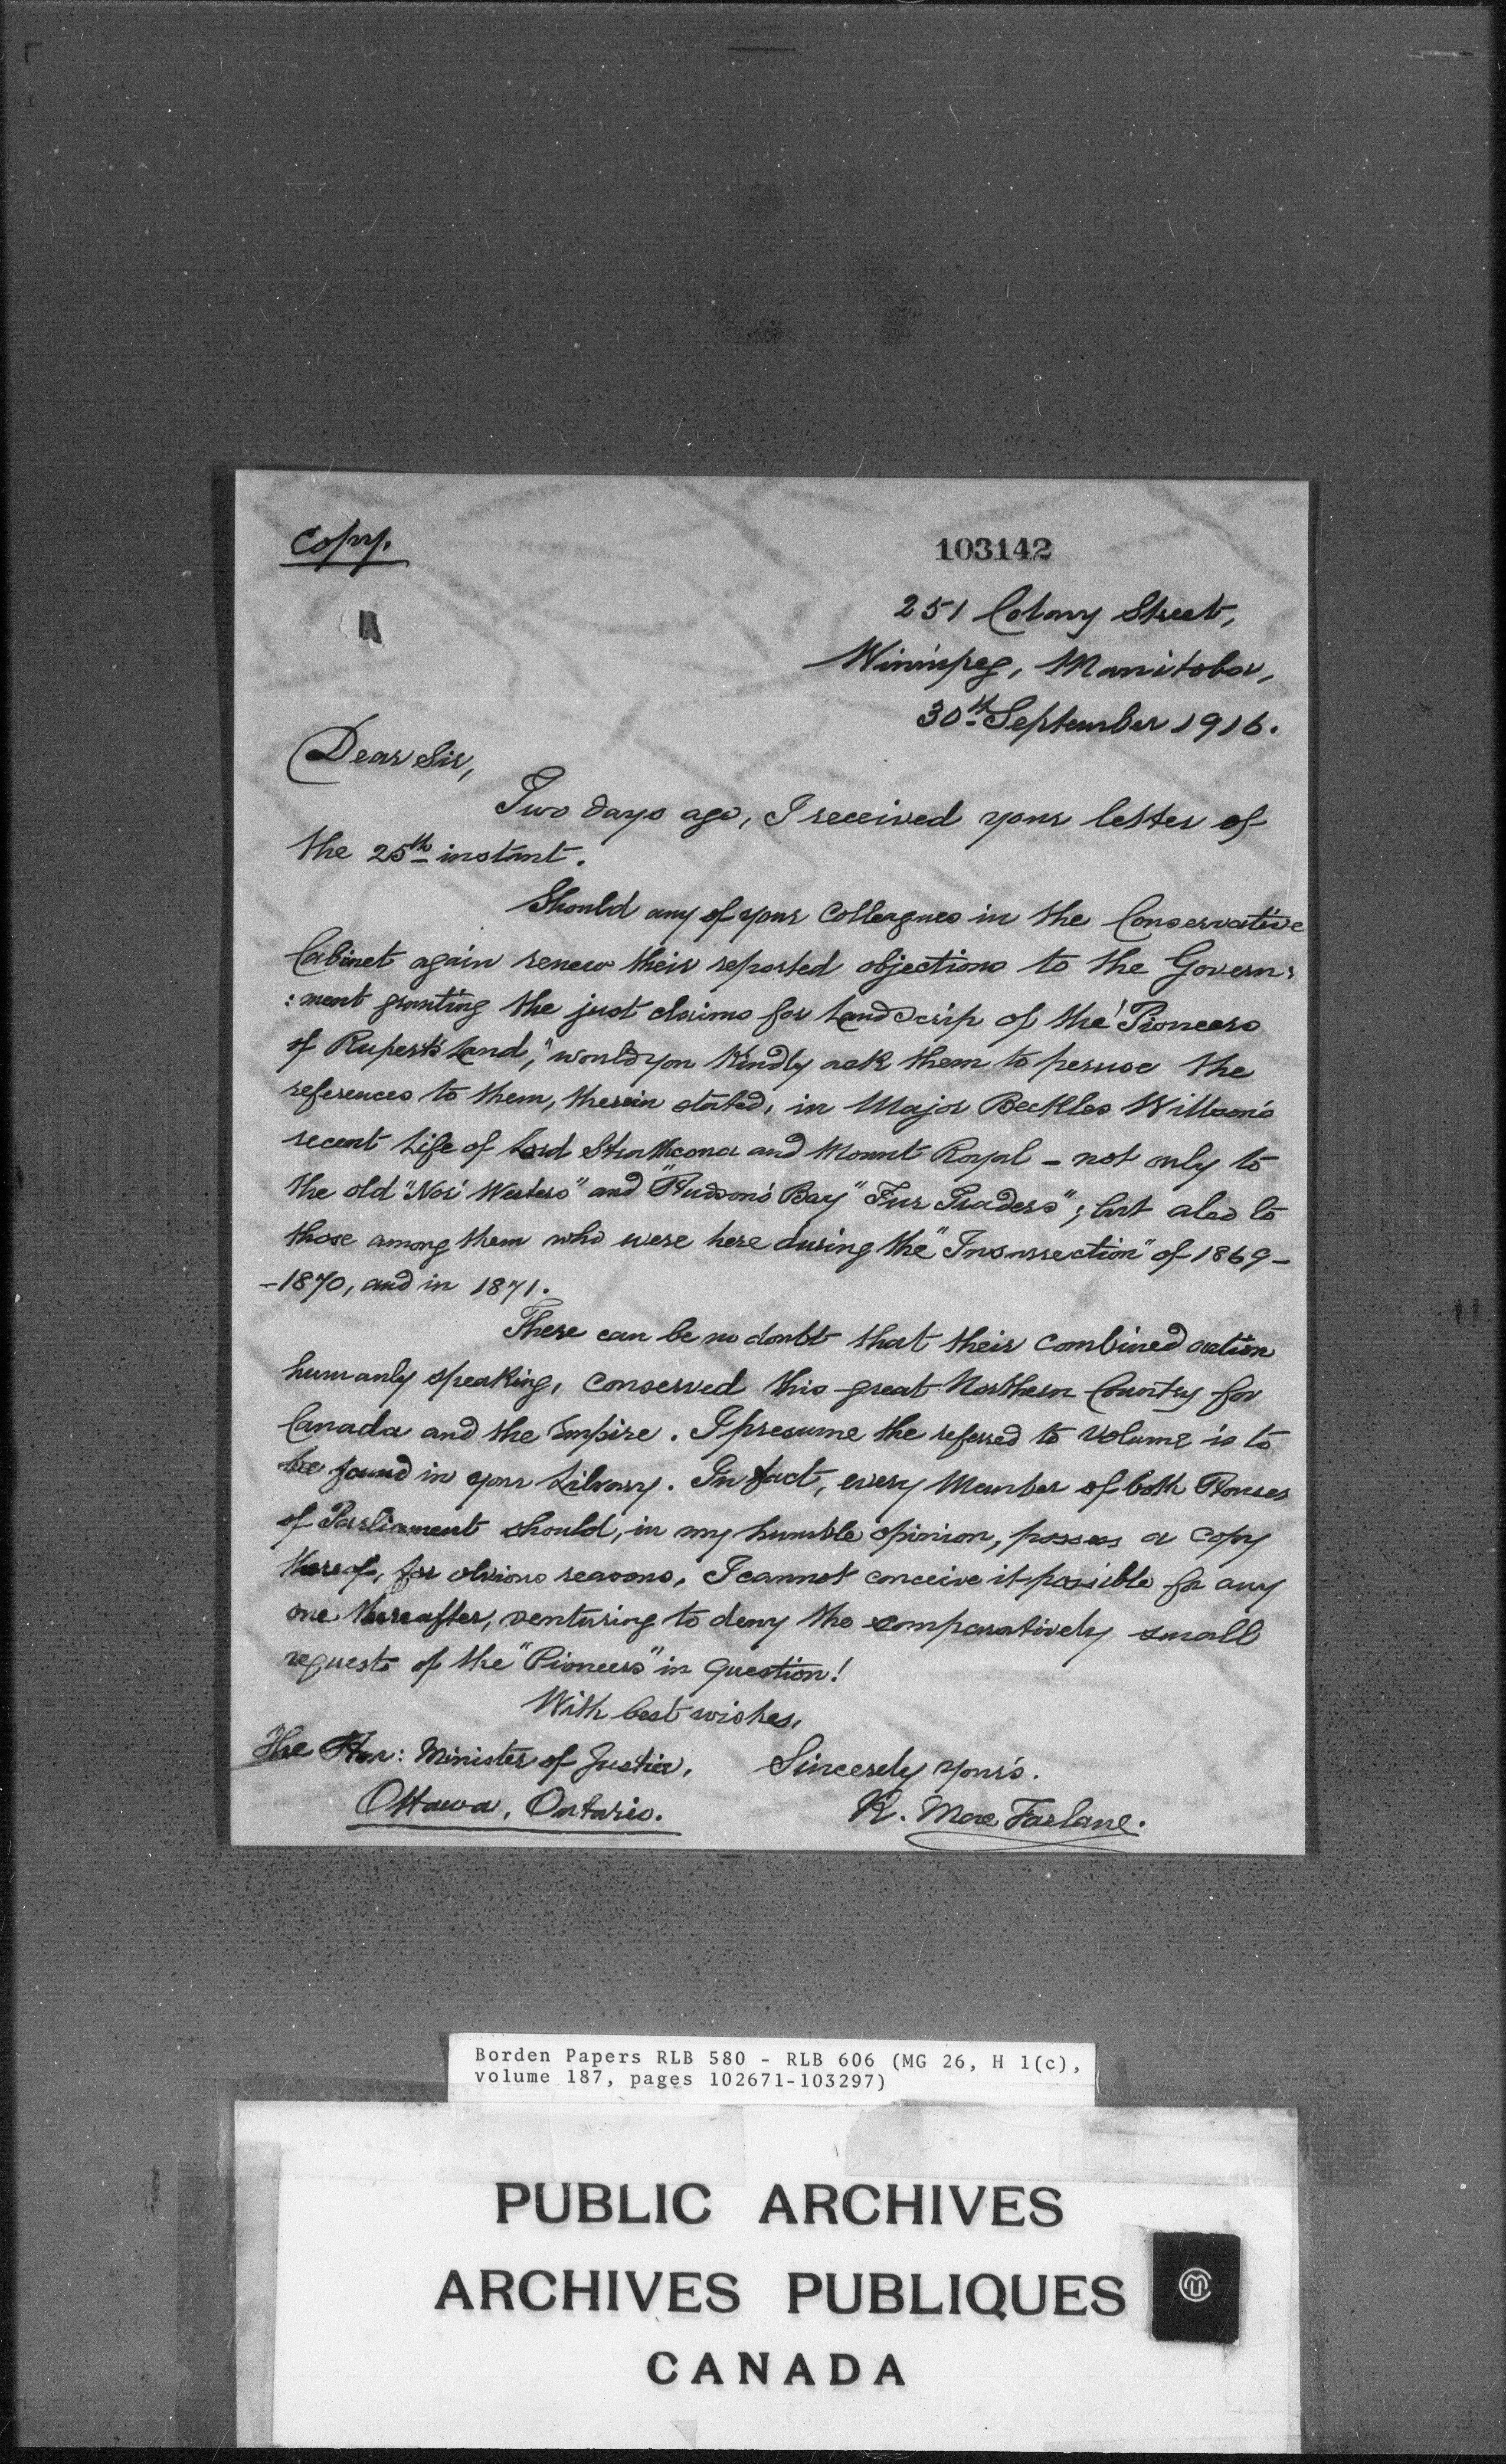 Copy.
103142
251 Colony Street,
Winnipeg, Manitoba,
30th September 1916.
Dear Sir,
Two days ago, I received your letter of
the 25th instant.
Should any of your Colleagues in the Conservative
Cabinet again renew their reported objections to the Govern:
:ment granting the just claims for Land Scrip of the "Pioneers
of Rupert's Land," would you kindly ask them to peruse the
references to them, therein stated, in Major Beckles Willson's
recent Life of Lord Strathcona and Mount Royal - not only to
the old "Nor' Westers" and "Hudson's Bay" Fur Traders"; but also to
those among them who were here during the "Insurrection" of 1869-
-1870, and in 1871.
There can be no doubt that their combined action
humanly speaking, conserved this great Northern Country for
Canada and the Empire. I presume the referred to volume is to
be found in your Library. In fact, every Member of both Houses
of Parliament should, in my humble opinion, possess a copy
thereof, for obvious reasons, I cannot conceive it possible for any
one thereafter, venturing to deny the comparatively small
request of the "Pioneers" in question!
With best wishes,
The Hon: Minister of Justice, Sincerely yours.
Ottawa, Ontario. R. MacFarlane.
Borden Papers RLB 580 - RLB 606 (MG 26, H 1(c),
volume 187, pages 102671-103297)
PUBLIC ARCHIVES
ARCHIVES PUBLIQUES
CANADA